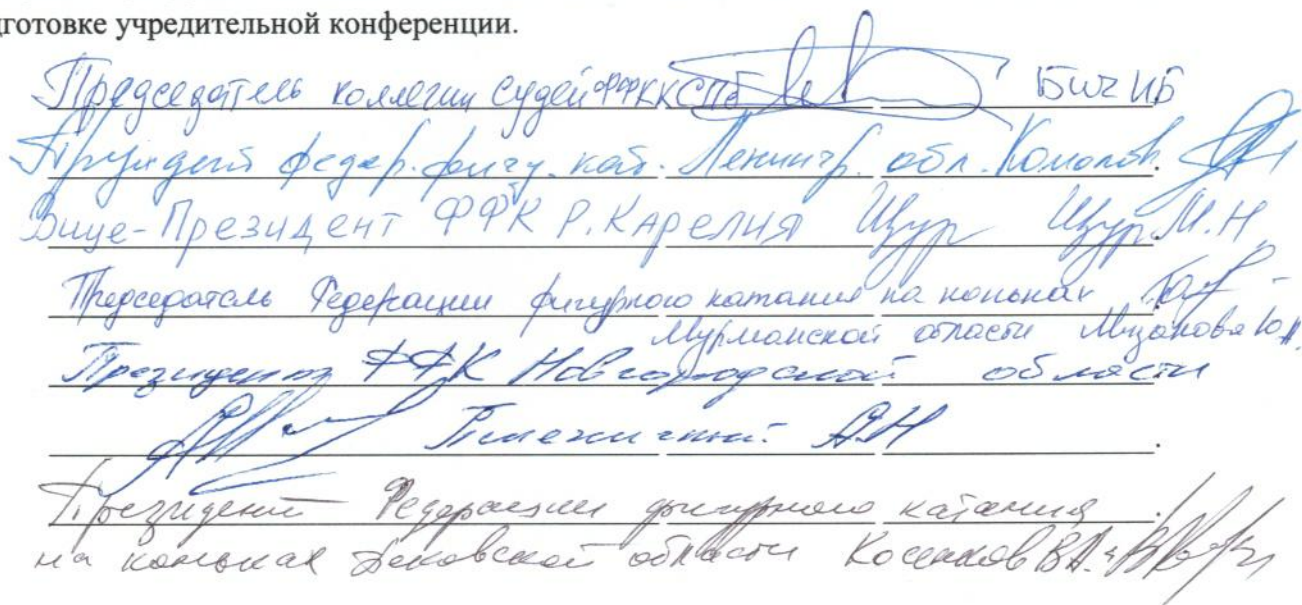 дготовке учредительной конференции.
Председатель коллегии судей ФФККСПб БИЧ ИБ
Президент федер. фигу. кат. Ленингр. обл.
Вице-Президент ФФК Р. КАРЕЛИЯ Щур Щур М.Н
Председатель Федерации фигурного катания на коньках
Мурманской области
Президент ФФК Новгородской области
АН
Президент Федерации фигурного катания
на коньках Псковской области Косенков В.А.